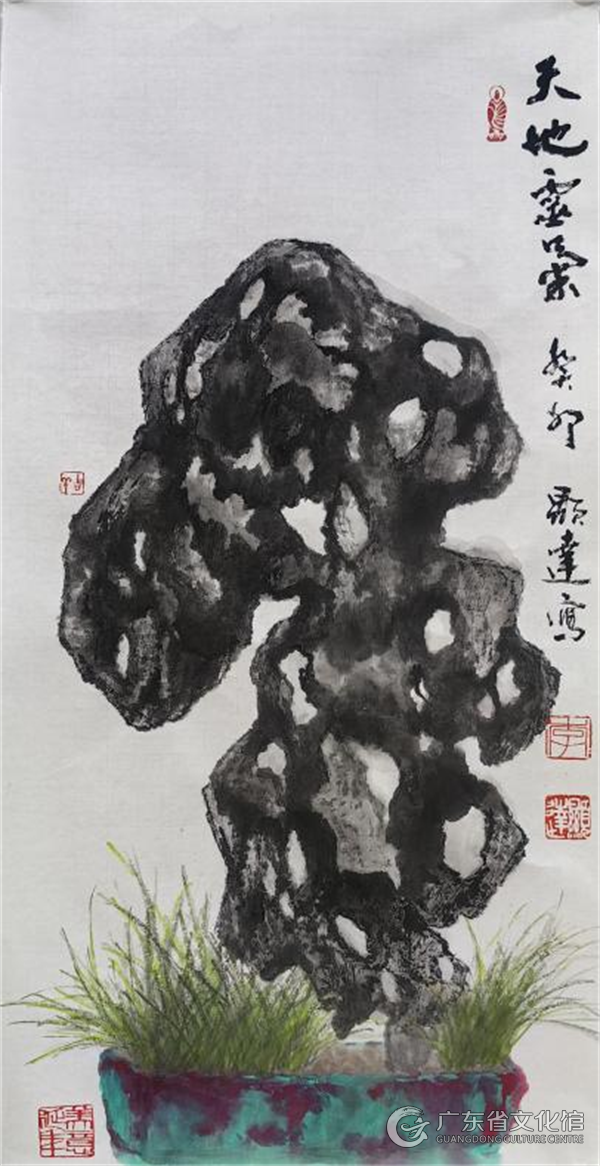 天地靈氣 癸卯 顯達寫
李
顯達
美意延年
广东省文化馆
GUANGDONG CULTURE CENTRE